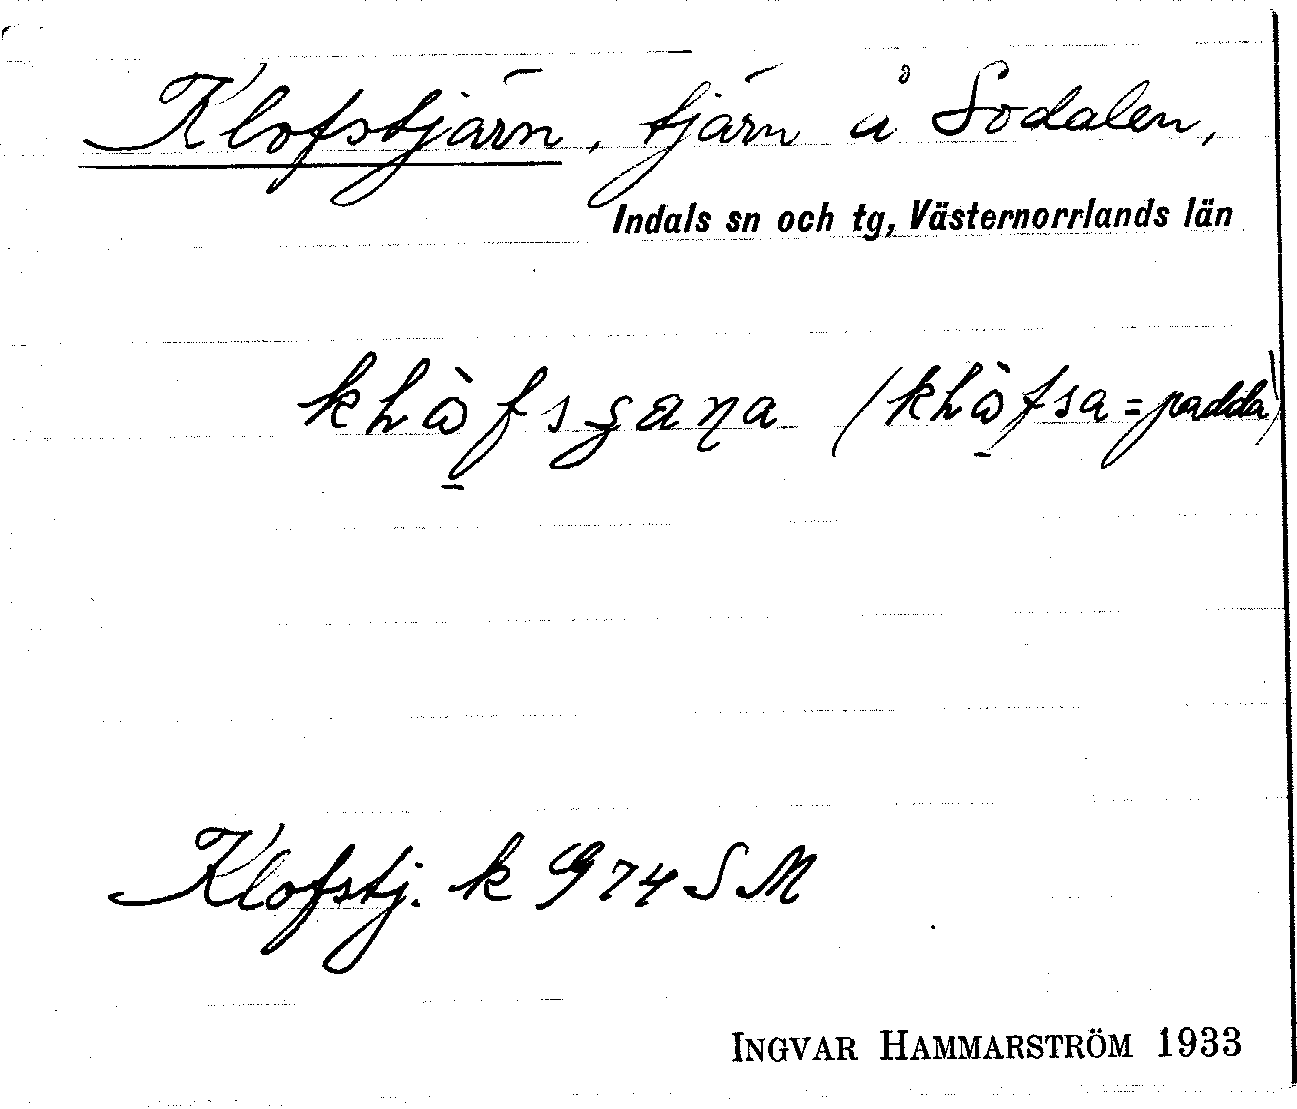 Klofstjärn, tjärn å Sodalen,
Indals sn och tg, Västernorrlands län
(= padda)
Klofstj. k G 74 S M
INGVAR HAMMARSTRÖM 1933